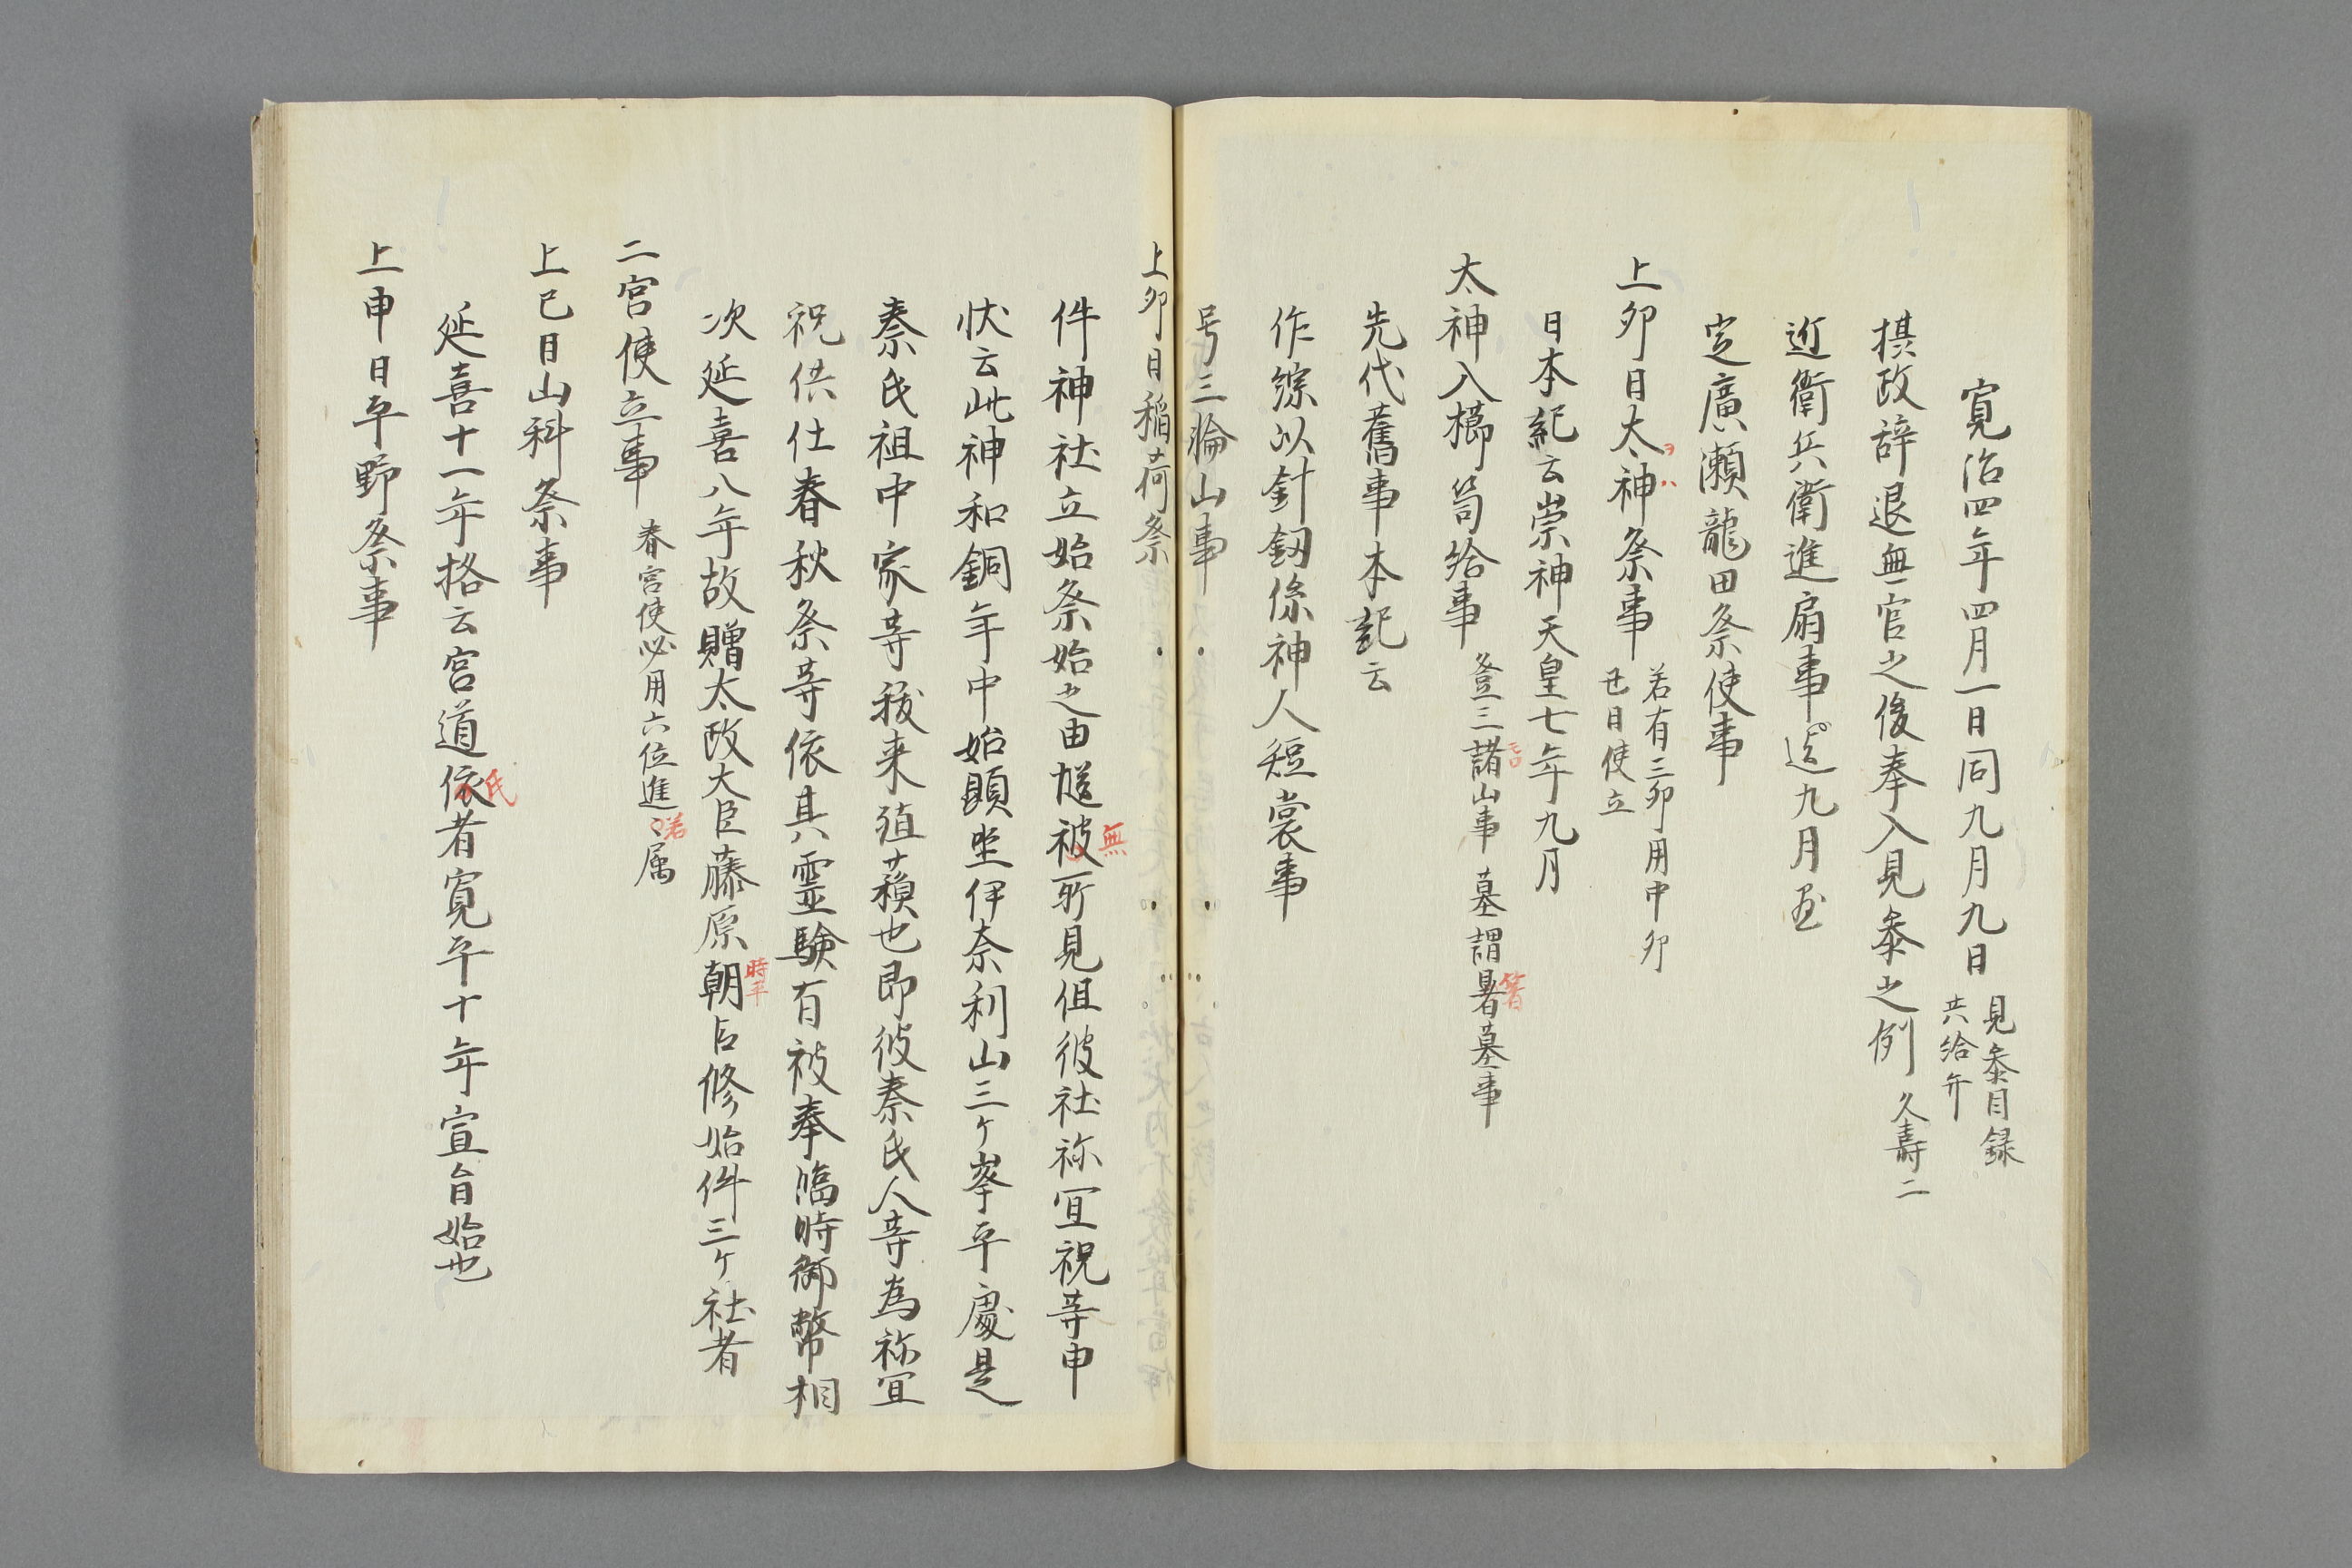 寛治四年四月一日同九月九日 見参目録
共給弁
摂政辞退無官之後奉入見参之例 久壽二
近衛兵衛進扇事 迄九月
定廣瀬龍田祭使事
上卯日大神祭事 若有三卯用中卯
丑日使立
ヲハ
日本紀云崇神天皇七年九月
太神入櫛笥給事 登三諸山事 墓謂暑墓事
モロ
箸
先代舊事本記云
作綜以針釼係神人短裳事
号三輪山事
上卯日稲荷祭
件神社立始祭始之由慥被所見但彼社祢冝祝等申
無
状云此神和銅年中始顕坐伊奈利山三ケ峯平處是
秦氏祖中家等秡来殖蘓也即彼秦氏人等為祢冝
祝供仕春秋祭等依其霊験有被奉臨時御幣相
次延喜八年故贈太政大臣藤原朝臣修始件三ケ社者
時平
二宮使立事 春宮使必用六位進、属
若
上巳日山科祭事
延喜十一年格云宮道依者寛平十年宣旨始也
氏
上申日平野祭事